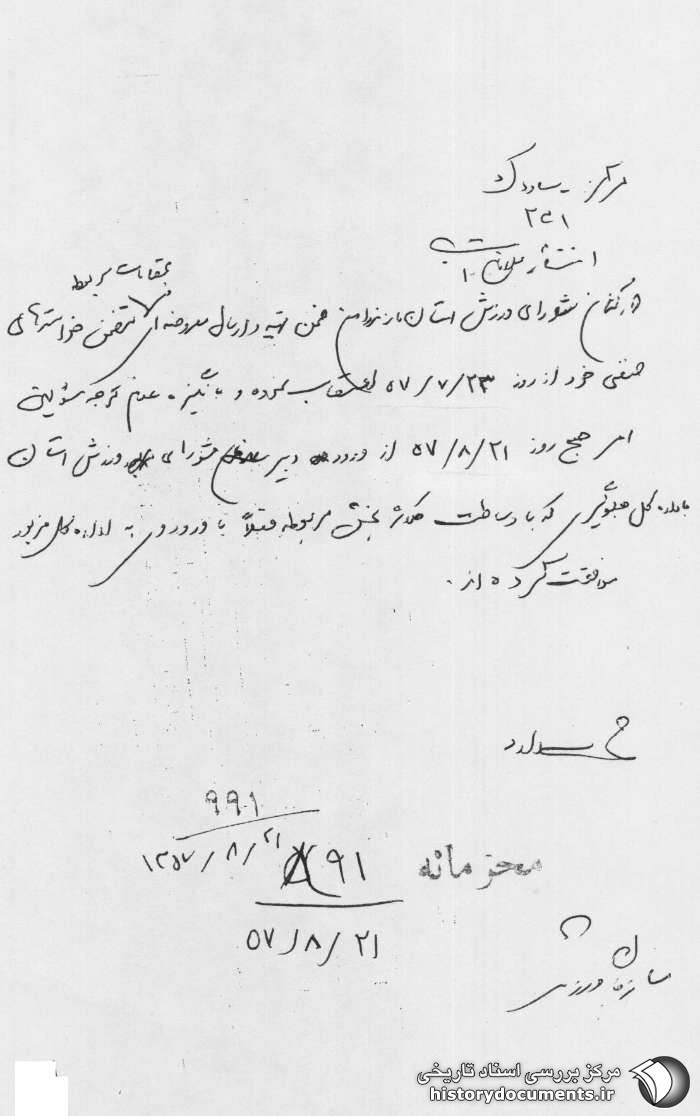 مرکز - ساواک
۲۵۱
انتشار
بمقامات مربوطه
کارکنان شورای ورزش استان مازندران ضمن تهیه و ارسال معروضه ای متضمن خواسته های
صنفی خود از روز ۵۷/۷/۲۳ اعتصاب نموده و بانگیزه عدم توجه مسئولین
امر صبح روز ۵۷/۸/۲۱ از ورود دبیر شورای ورزش استان
باداره کل جلوگیری که با وساطت بخش مربوطه قبلاً با ورود وی به اداره کل مزبور
موافقت کرده اند.
۹۹۱
۱۳۵۷/۸/۲۱
۹۱
محرمانه
۵۷/۸/۲۱
سازمان ورزش
مرکز بررسی اسناد تاریخی
historydocuments.ir